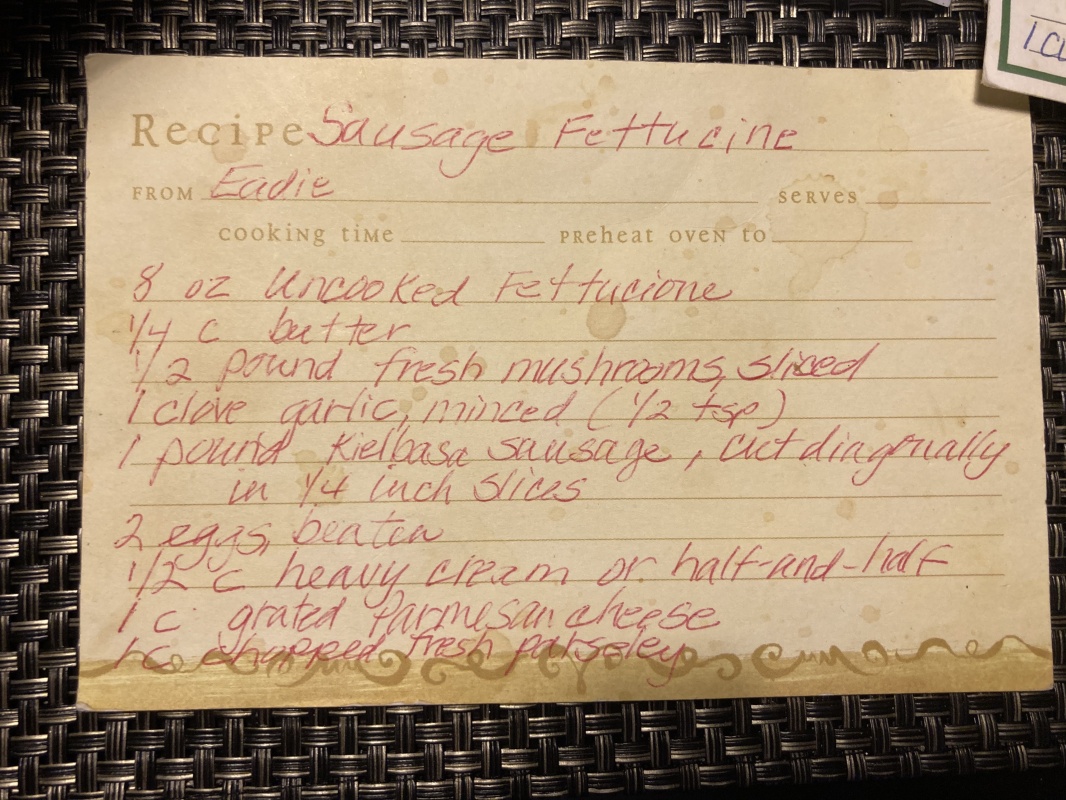 Recipe Sausage Fettucine
FROM Eadie serves
cooking time preheat oven to
8 oz Uncooked Fettucione
1/4 c butter
1/2 pound fresh mushrooms, sliced
1 clove garlic, minced (1/2 tsp)
1 pound Kielbasa sausage, cut diagnually
in 1/4 inch slices
2 eggs, beaten
1/2 c heavy cream or half-and-half
1 c grated Parmesan cheese
1 c chopped fresh palsoley